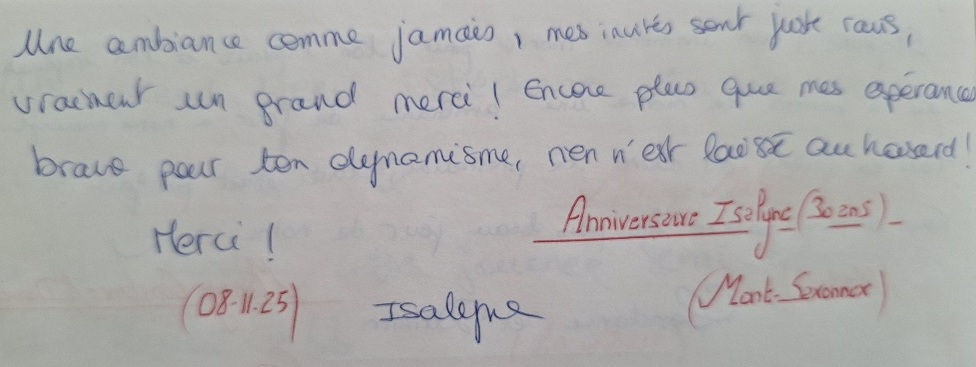 Une ambiance comme jamais, mes invités sont juste ravis,
vraiment un grand merci ! Encore plus que mes espérances
bravo pour ton dynamisme, rien n'est laissé au hasard !
Merci !
Anniversaire Isalyne (30 ans)
(08-11-25) Isalyne (Mont-Saxonnex)